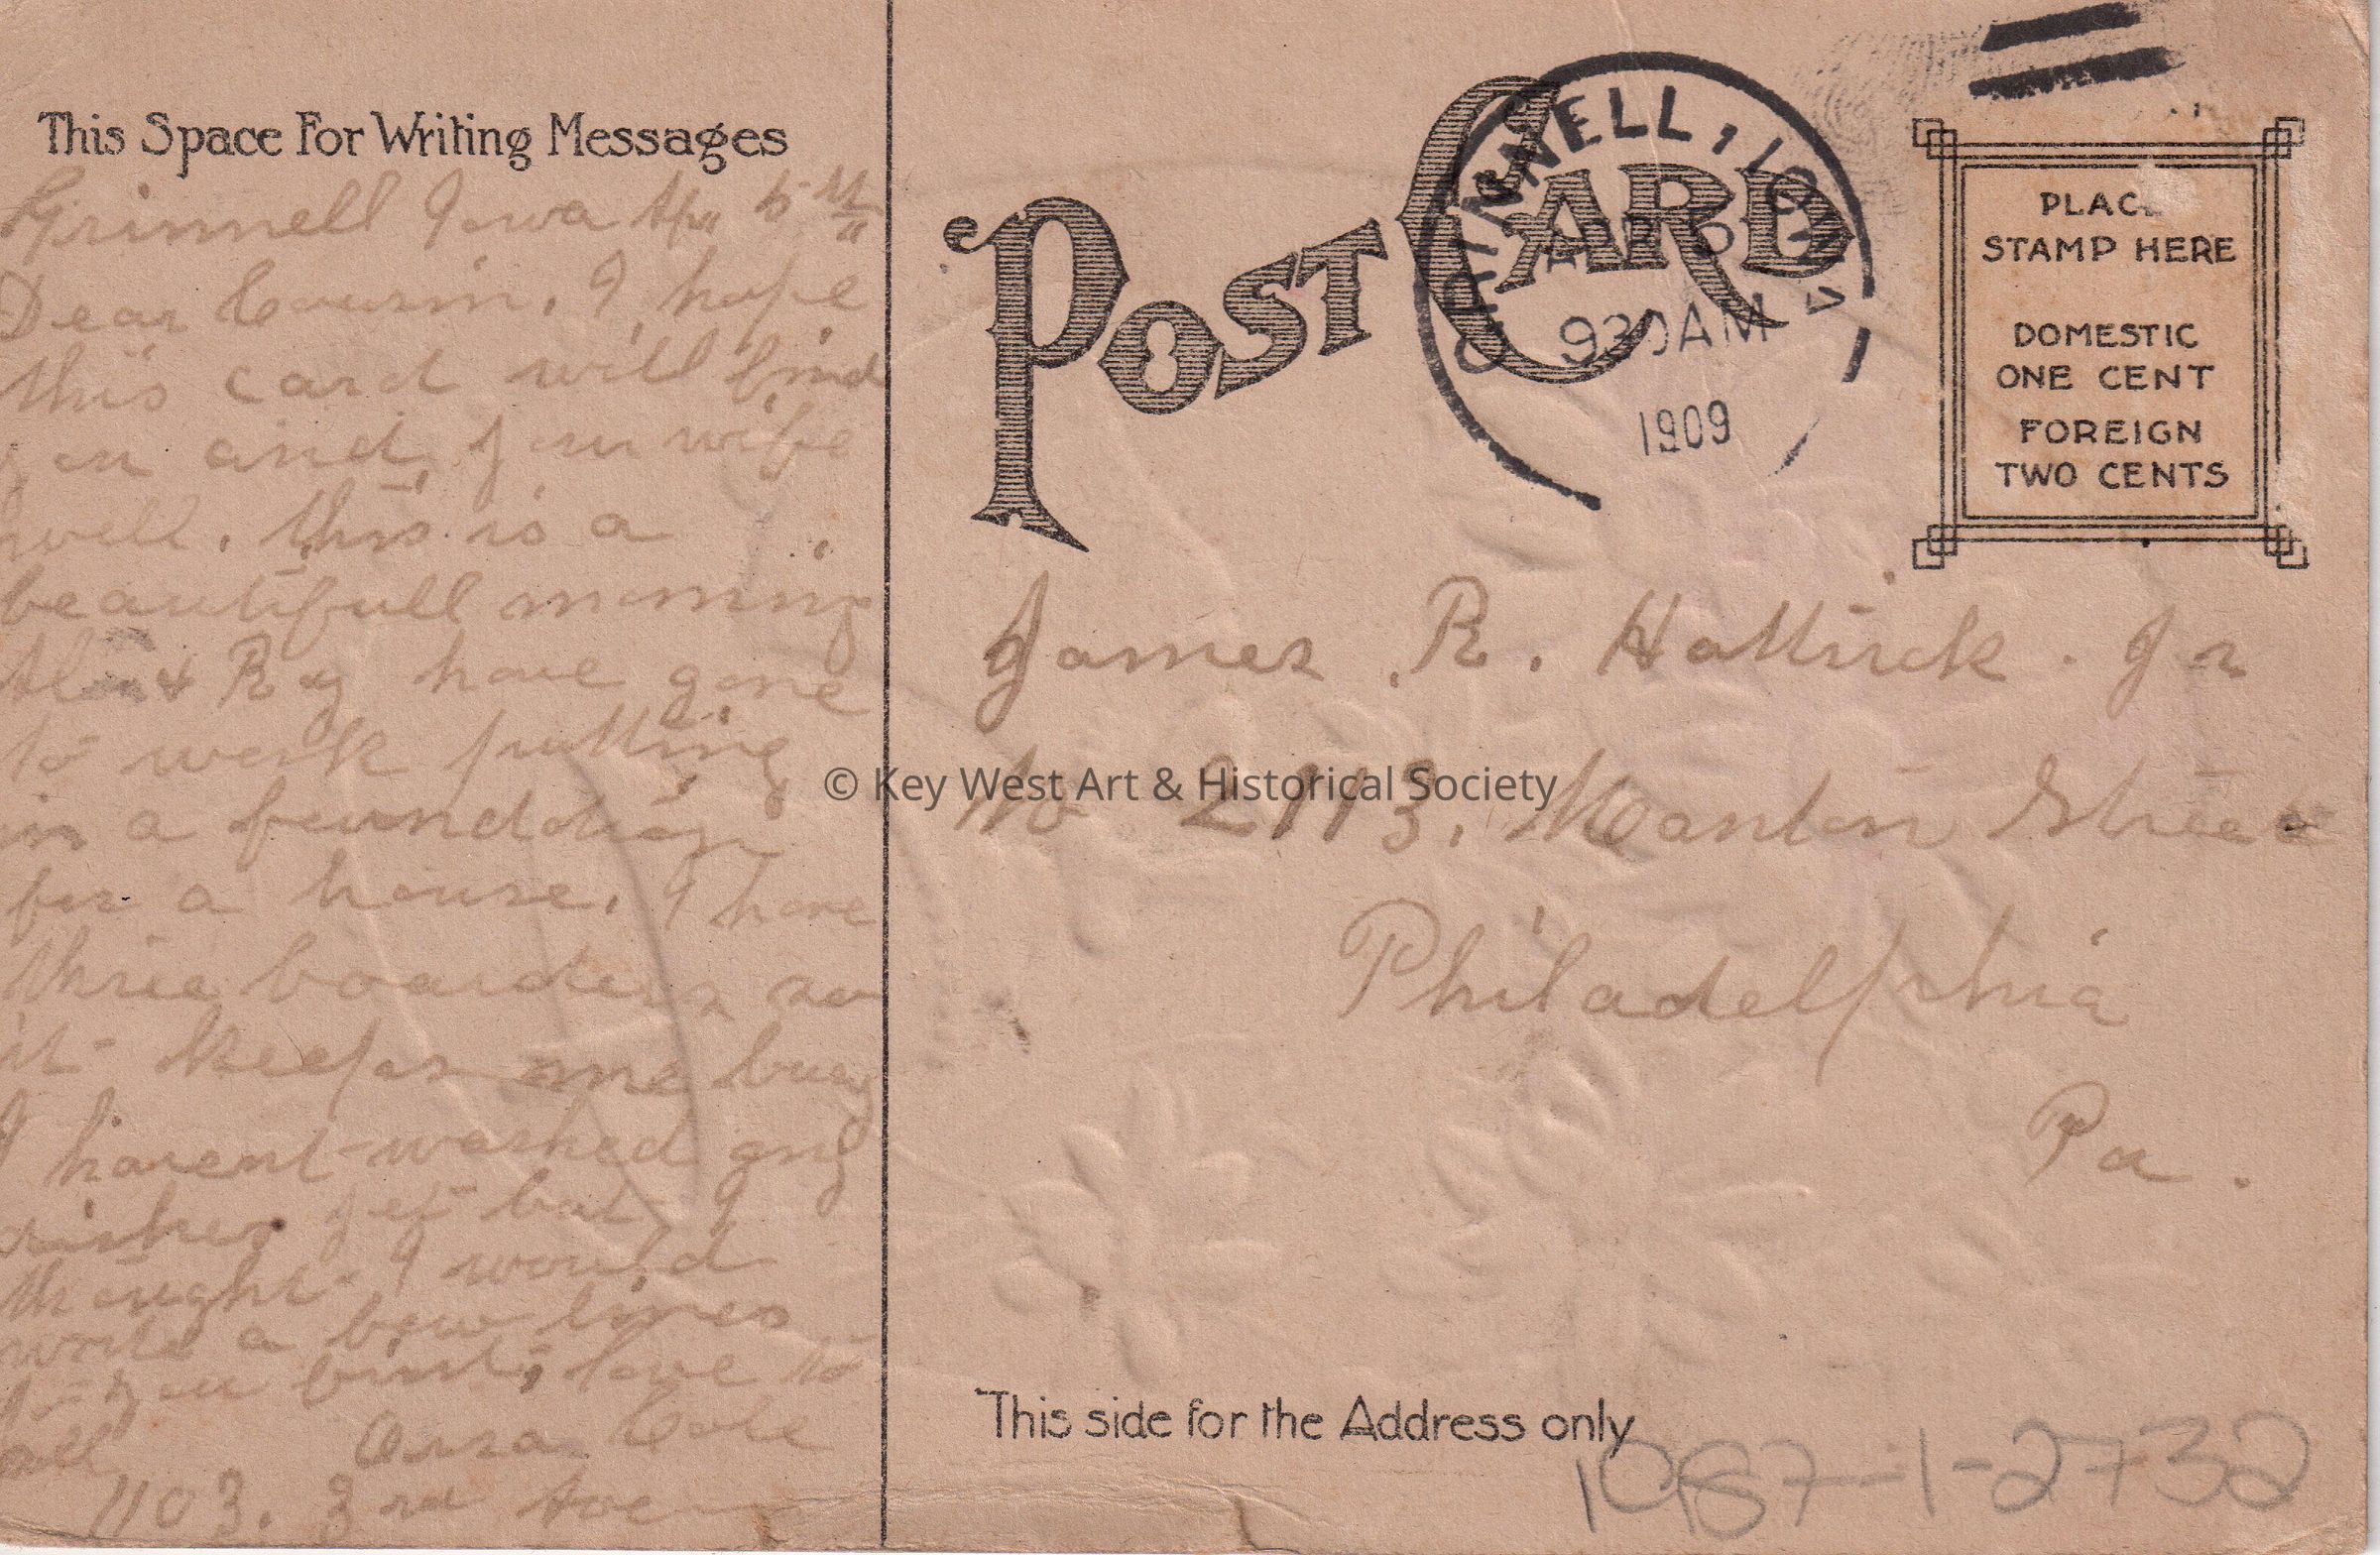 This Space For Writing Messages
Grinnell Iowa Apr 5th
Dear Cousin. I hope
this card will find
you and your wife
well. this is a
beautifull morning
Al & Ray have gone
to work putting
in a foundation
for a house. I have
three boarders so
it keeps me busy
I havent washed my
dishes yet but I
thought I would
write a few lines
to you first, love to
all Cole
1103. 3rd Ave
POST CARD
GRINNELL, IOWA
APR 5
930AM
1909
PLACE
STAMP HERE
DOMESTIC
ONE CENT
FOREIGN
TWO CENTS
James R. Hattrick. Jr
No 2113. Manton Street
Philadelphia
Pa.
© Key West Art & Historical Society
This side for the Address only
1987-1-2732